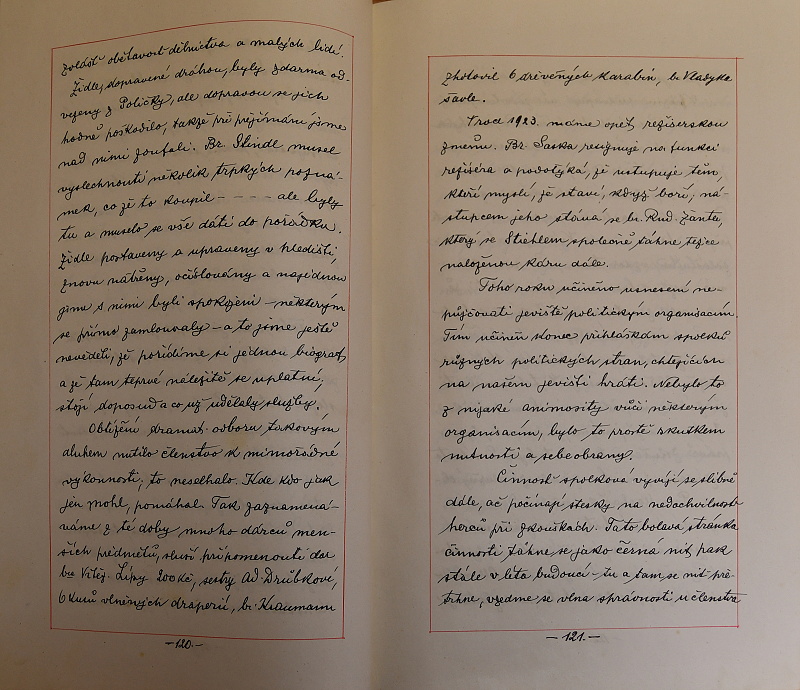 zvlášť obětavost dělnictva a malých lidí.
Židle, dopravené dráhou, byly zdarma od-
vezeny z Poličky, ale dopravou se jich
hodně poškodilo, takže při přejímání jsme
nad nimi zoufali. Br. Stindl musel
vyslechnouti několik trpkých pozná-
mek, co že to koupil - - - - ale byly
tu a muselo se vše dáti do pořádku.
Židle postaveny a upraveny v hledišti,
znovu natřeny, očíslovány a najednou
jsme s nimi byli spokojeni - některým
se přímo zamlouvaly - a to jsme ještě
nevěděli, že pořídíme si jednou biograf,
a že tam teprve náležitě se uplatní;
stojí doposud a co už udělaly služby.
Obtížení dramat. odboru takovým
dluhem nutilo členstvo k mimořádné
výkonnosti; to neselhalo. Kde kdo jak
jen mohl, pomáhal. Tak zaznamená-
váme z té doby mnoho dárců men-
ších předmětů, sluší připomenouti dar
br. Vítěz. Lípy 200 Kč, sestry Ad. Drůbkové,
6 kusů vlněných draperií, br. Kraumann
-120.-
zhotovil 6 dřevěných karabin, br. Vladyka
šavle.
V roce 1923. máme opět režisérskou
změnu. Br. Saska resignuje na funkci
režiséra a podotýká, že ustupuje těm,
kteří myslí, že staví, když boří; ná-
stupcem jeho stává se br. Rud. Zanta,
který se Stiehlem společně táhne těžce
naloženou káru dále.
Toho roku učiněno usnesení ne-
půjčovati jeviště politickým organisacím.
Tím učiněn konec přihláškám spolků
různých politických stran, chtějících
na našem jevišti hráti. Nebylo to
z nijaké animosity vůči některým
organisacím, bylo to prostě skutkem
nutnosti a sebeobrany.
Činnost spolková vyvíjí se slibně
dále, ač počínají stesky na nedochvilnost
herců při zkouškách. Tato bolavá stránka
činnosti táhne se jako černá nit pak
stále v léta budoucí - tu a tam se nit pře-
trhne, vzedme se vlna správnosti u členstva
-121.-